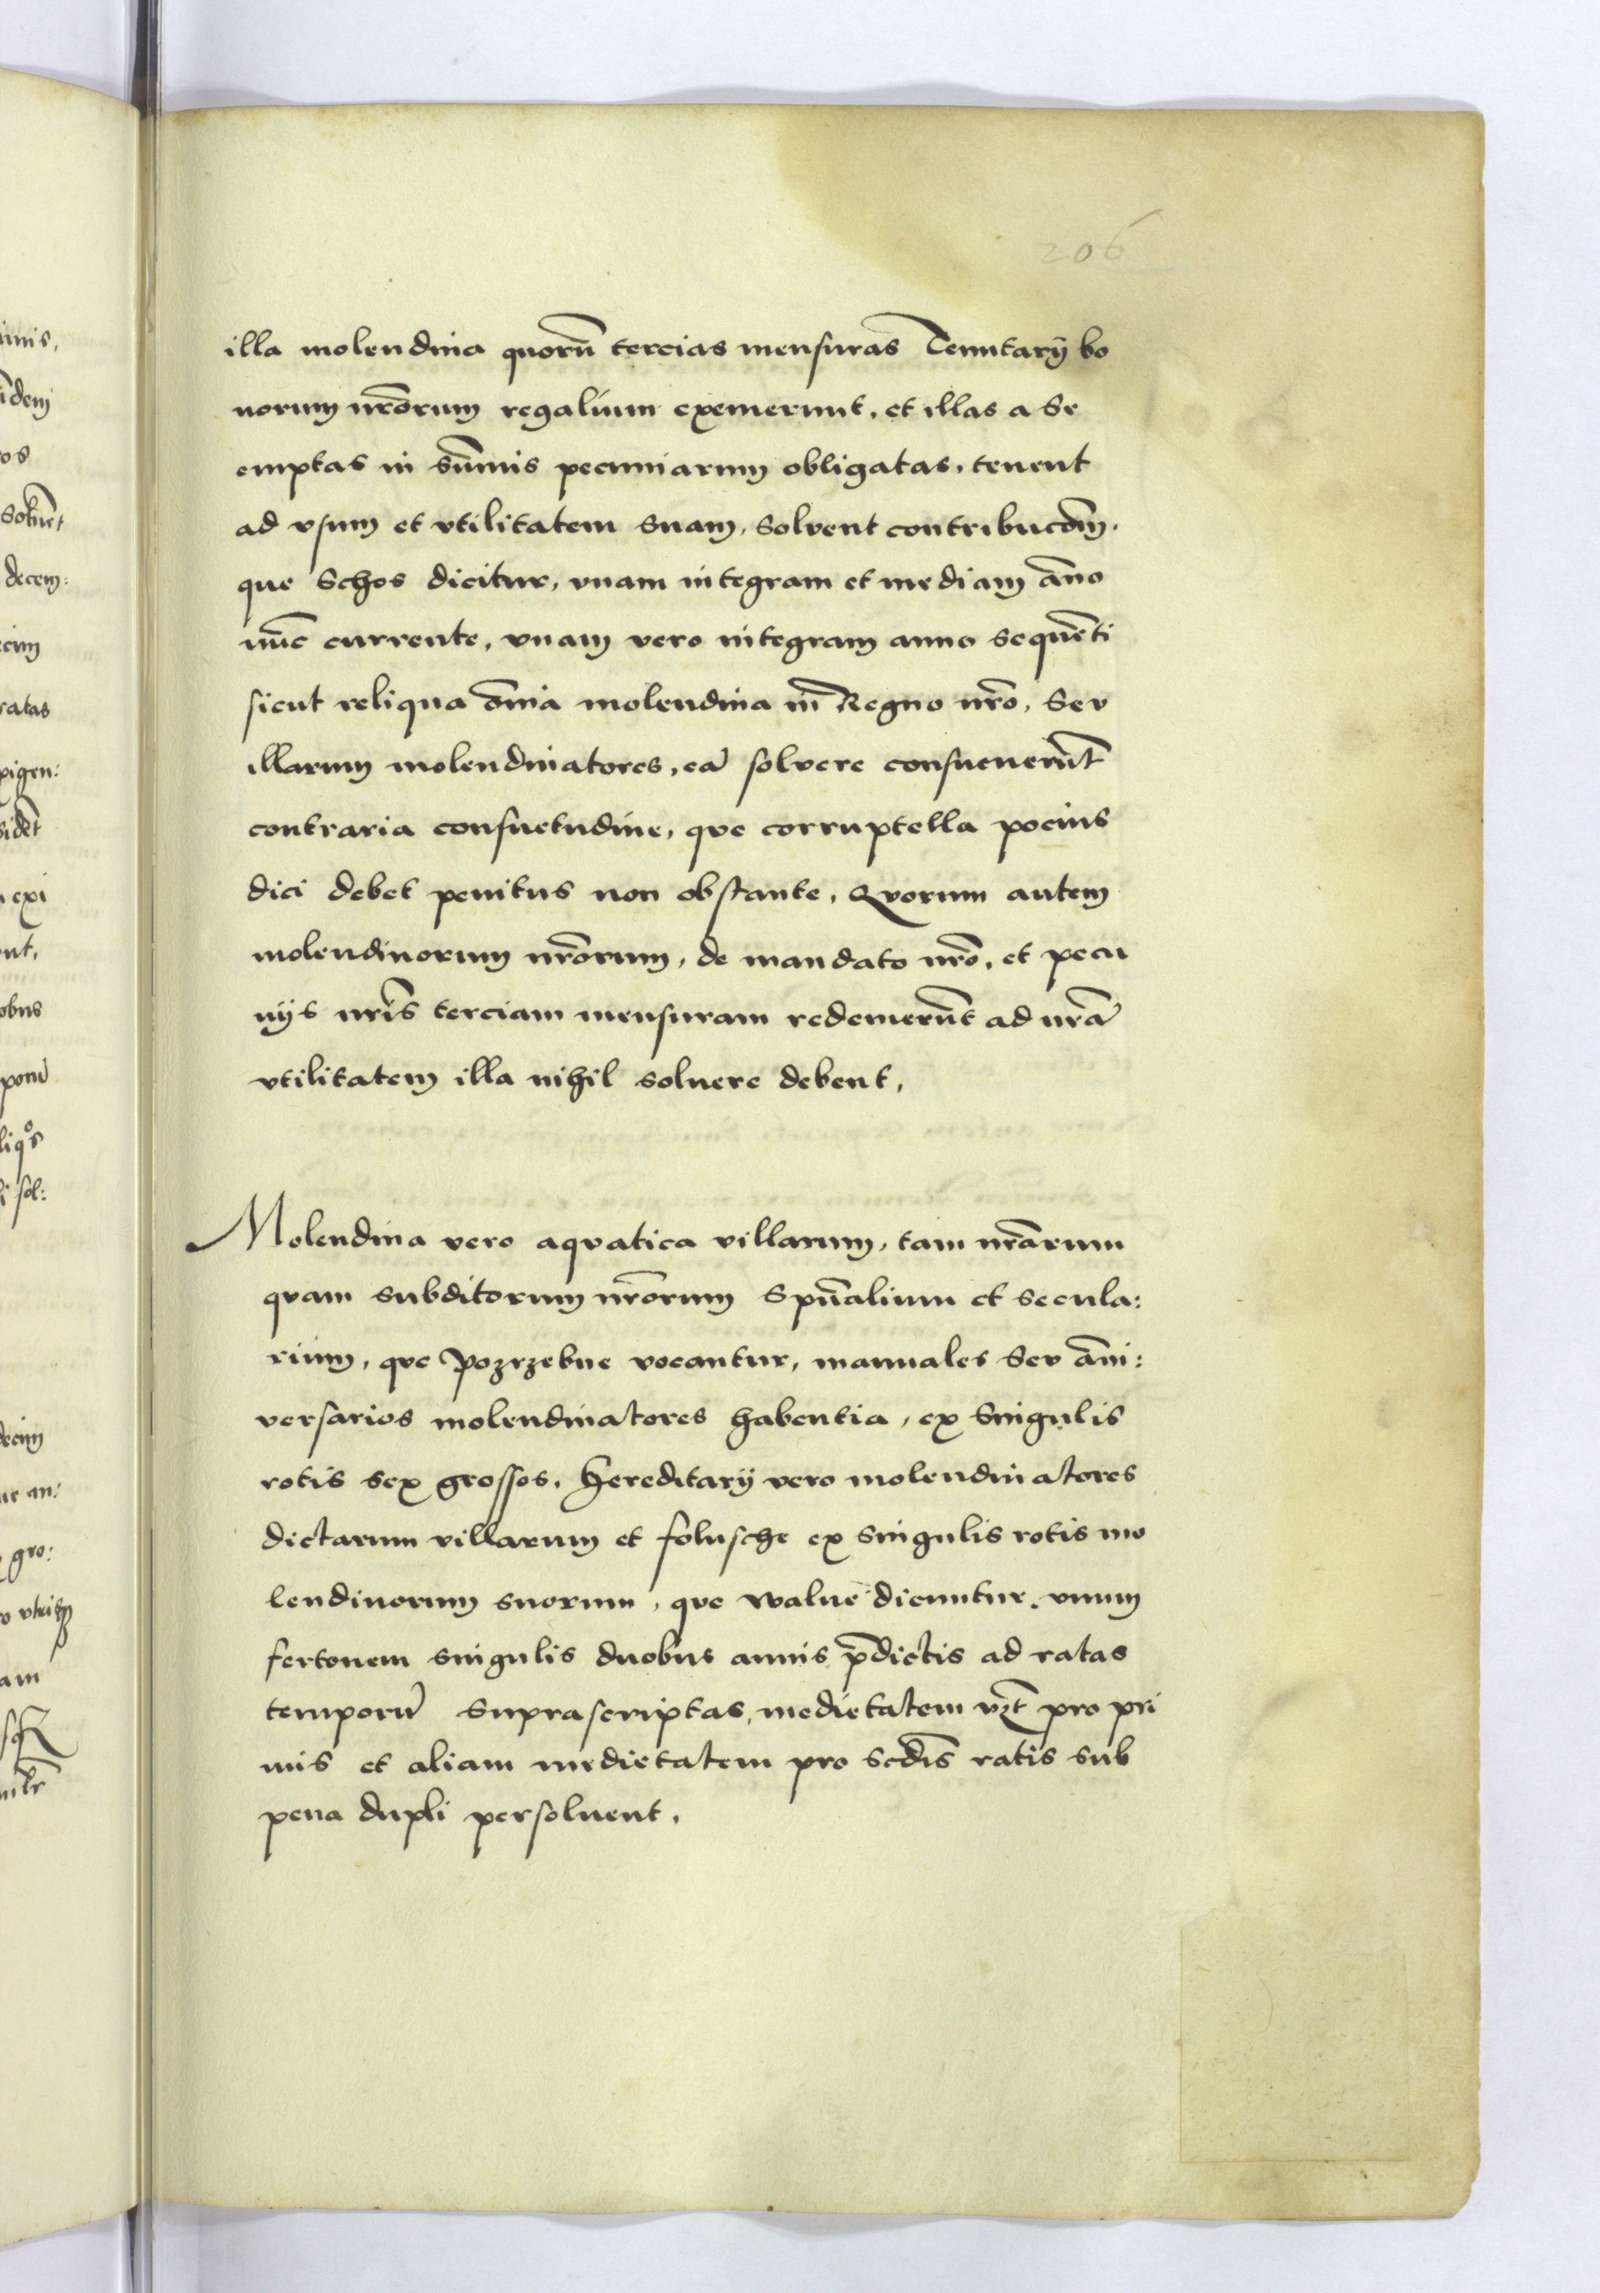 206
illa molendina quorū tercias mensuras Tenutarÿ bo
norum nr̄orum regalium exemerunt, et illas a se
emptas in sūmis pecuniarum obligatas, tenent
ad vsum et vtilitatem suam, solvent contribucōm.
que Schos dicitur, vnam integram et mediam ān̄o
nūc currente, vnam vero integram anno sequēti
sicut reliqua ōnia molendina in Regno nr̄o, Sev
illarum molendinatores, eā solvere consueuerūt
contraria consuetudine, qve corruptella pocius
dici debet penitus non obstante, Qvorum autem
molendinorum nr̄orum, de mandato nr̄o, et pecu
nijs nr̄is terciam mensuram redemerūt ad nr̄ā
vtilitatem illa nihil soluere debent,
Molendina vero aqvatica villarum, tam nr̄arum
qvam subditorum nr̄orum Spūalium et secula:
rium, qve Pozrzebne vocantur, manuales Sev āni:
versarios molendinatores habentia, ex Singulis
rotis sex grossos, Hereditarÿ vero molendinatores
dictarum villarum et folusche ex singulis rotis mo
lendinorum suorum, qve walne dicuntur, vnum
fertonem singulis duobus annis p̄dictis ad ratas
temporū suprascriptas, medietatem vzt̄ pro pri
mis et aliam medietatem pro Scdīs ratis sub
pena dupli persoluent,